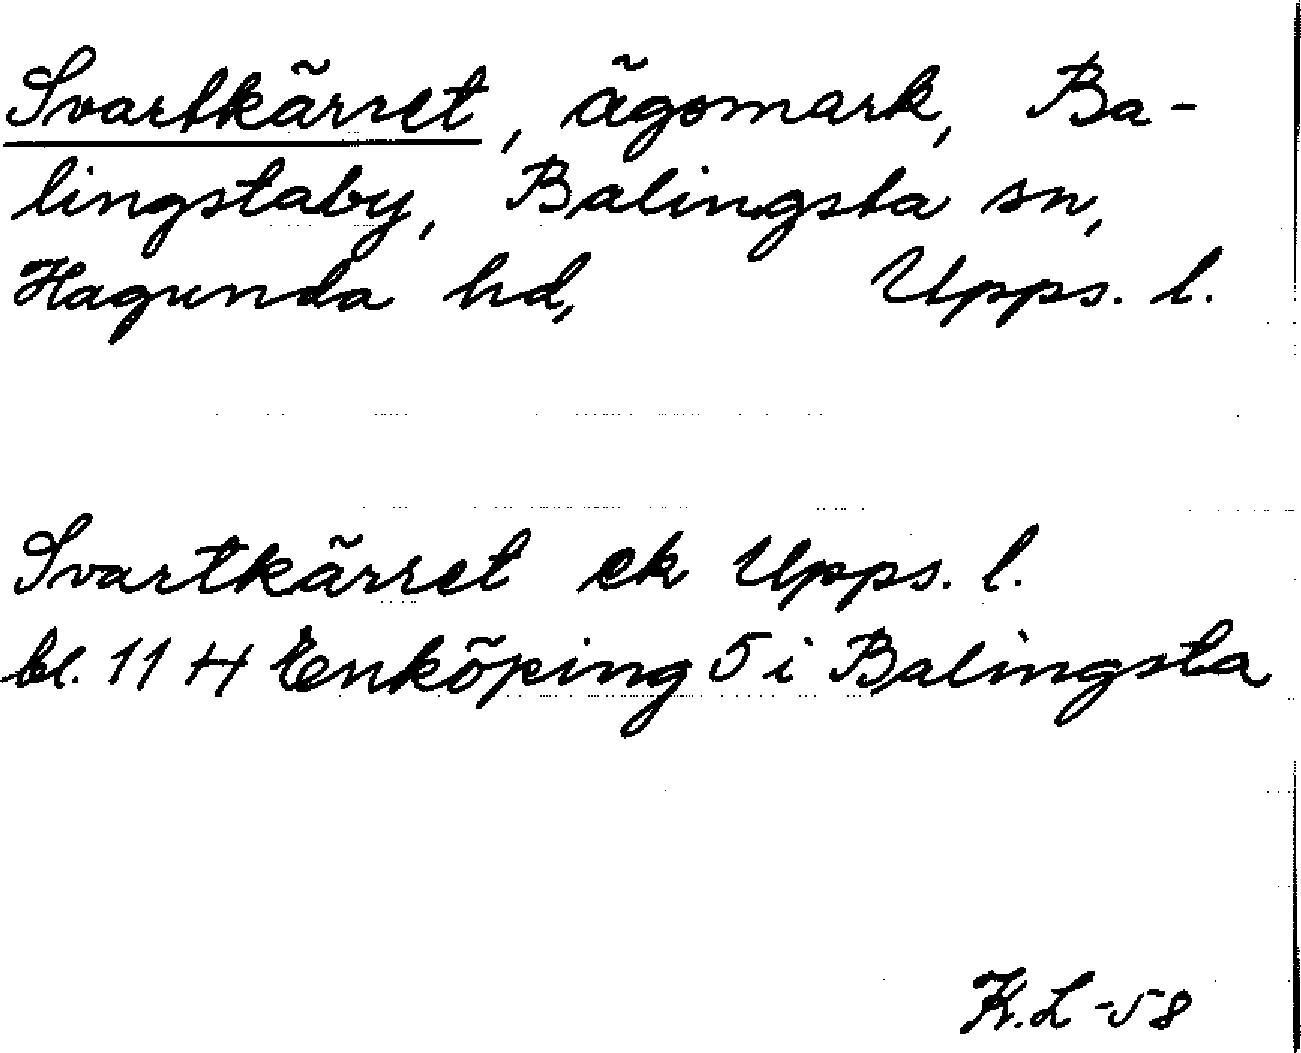 Svartkärret, ägomark, Ba-
lingstaby, Balingsta sn,
Hagunda hd, Upps. l.
Svartkärret ek Upps. l.
bl. 11 H Enköping 5 i Balingsta
K.L -58